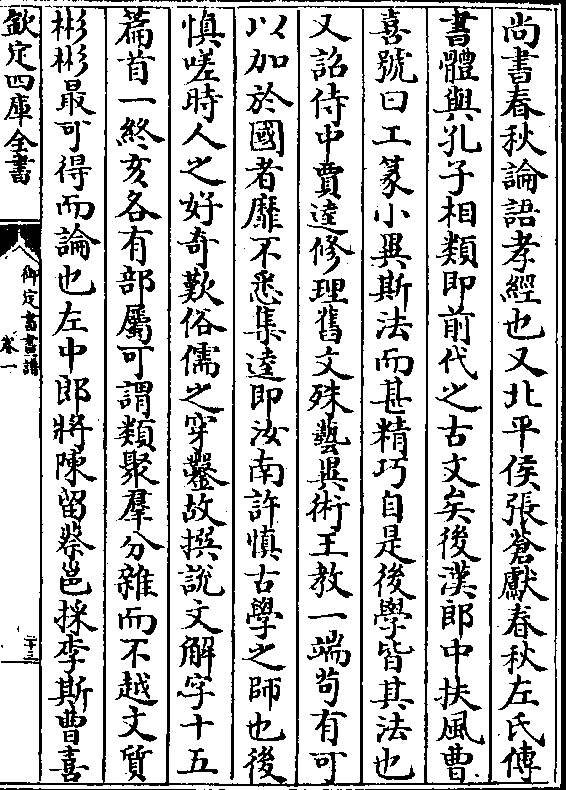 尚書春秋論語孝經也又北平侯張蒼獻春秋左氏傳
書體與孔子相類即前代之古文矣後漢郎中扶風曹
喜號曰工篆小異斯法而甚精巧自是後學皆其法也
又詔侍中賈逵修理舊文殊藝異術王教一端茍有可
以加於國者靡不悉集逵即汝南許慎古學之師也後
慎嗟時人之好奇歎俗儒之穿鑿故撰說文解字十五
篇首一終亥各有部屬可謂類聚羣分雜而不越文質
彬彬最可得而論也左中郎將陳留蔡邕採李斯曹喜
欽定四庫全書
御定書畫譜
卷一
二十三